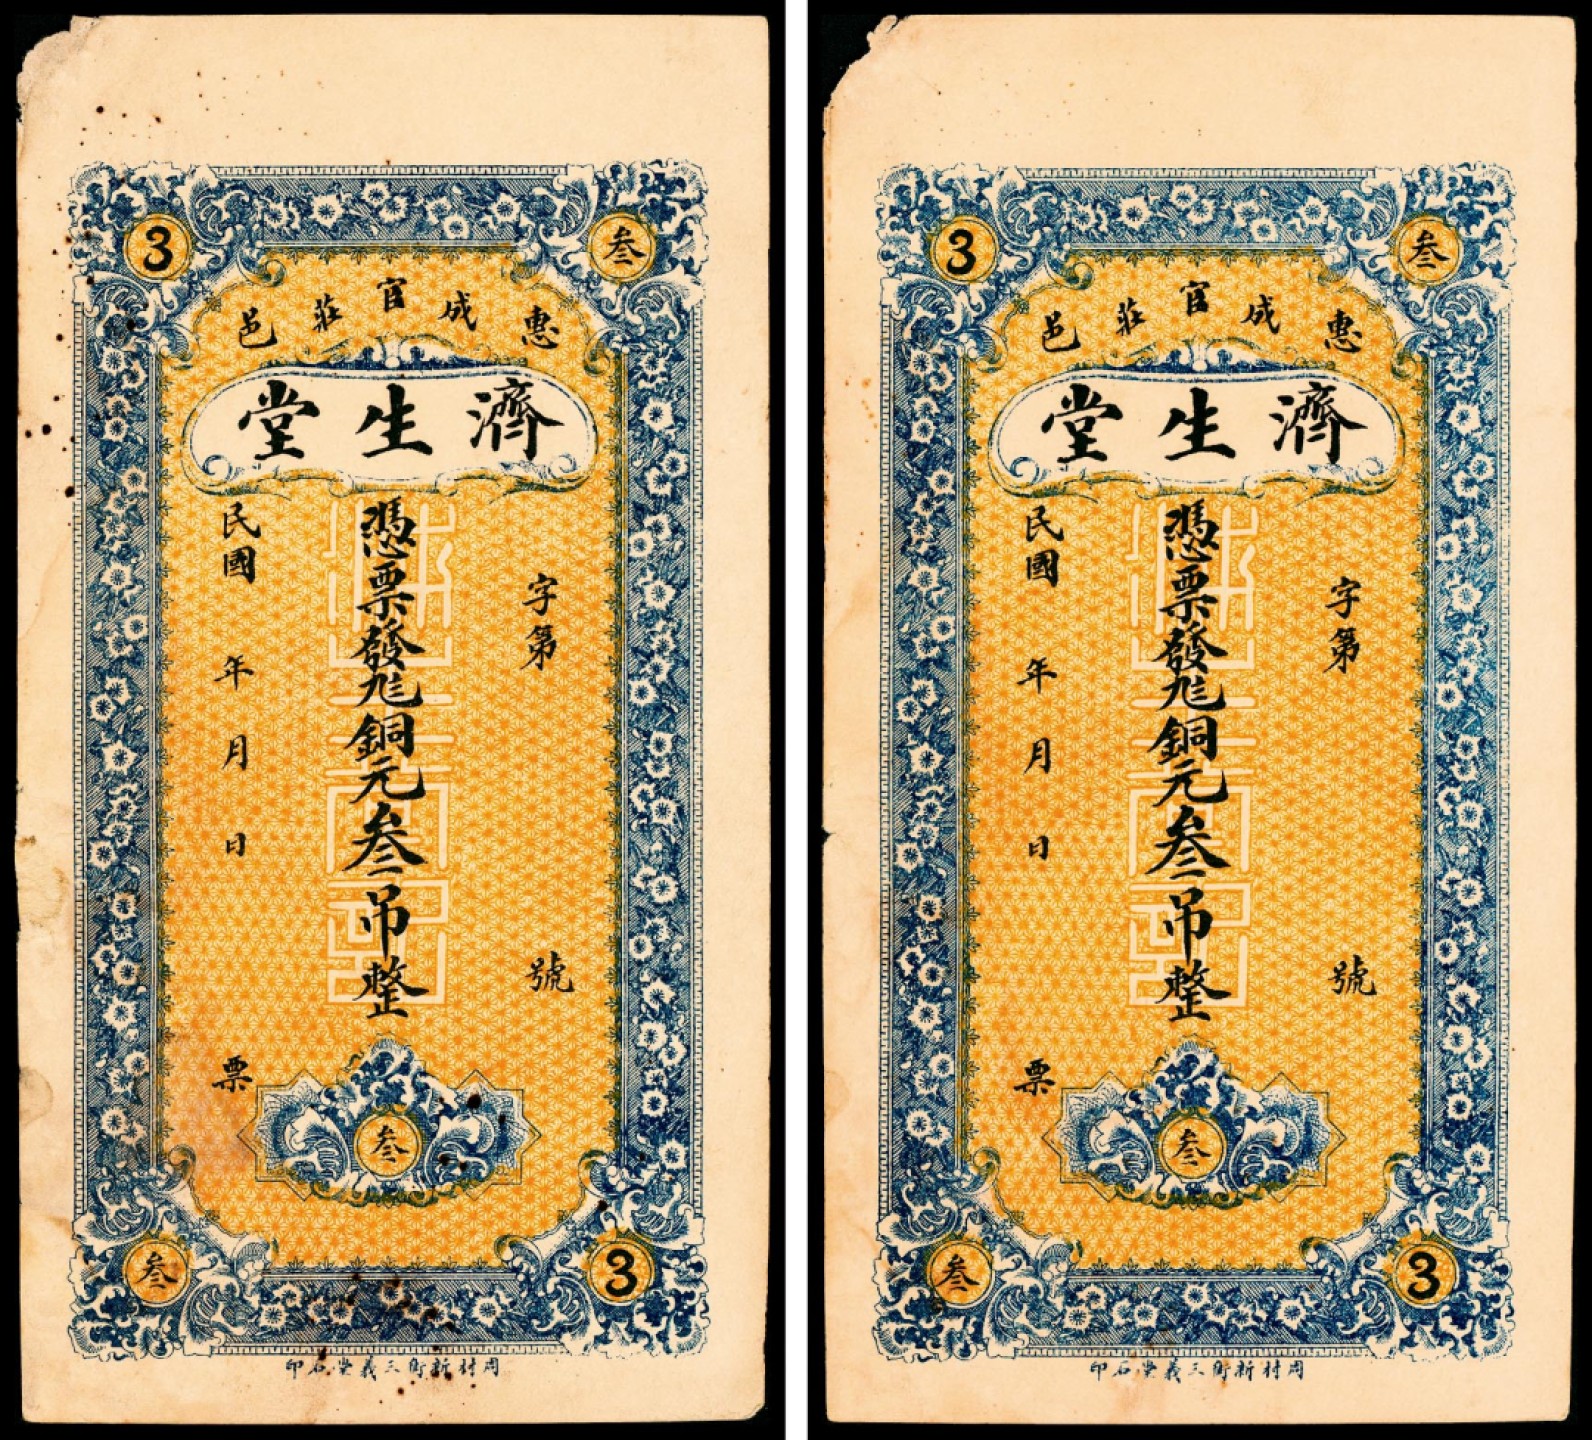 叁
3
惠成官莊邑
濟生堂
字第 號
憑票發兌銅元叁吊整
民國 年 月 日 票
叁
3
叁
周村新街三義堂石印
叁
3
惠成官莊邑
濟生堂
字第 號
憑票發兌銅元叁吊整
民國 年 月 日 票
叁
3
叁
周村新街三義堂石印